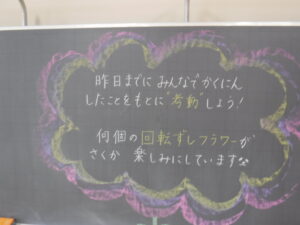 昨日までにみんなでかくにん
したことをもとに"考動"しよう!
何個の回転ずしフラワーが
さくか 楽しみにしています